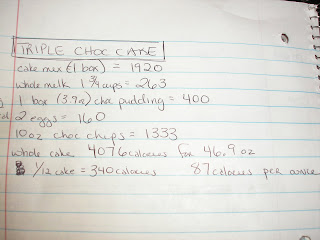 TRIPLE CHOC CAKE
cake mix (1 box) = 1920
whole milk 1 3/4 cups = 263
1 box (3.9oz) choc pudding = 400
2 eggs = 160
10 oz choc chips = 1333
whole cake 4076 calories for 46.9 oz
1/12 cake = 340 calories 87 calories per ounce